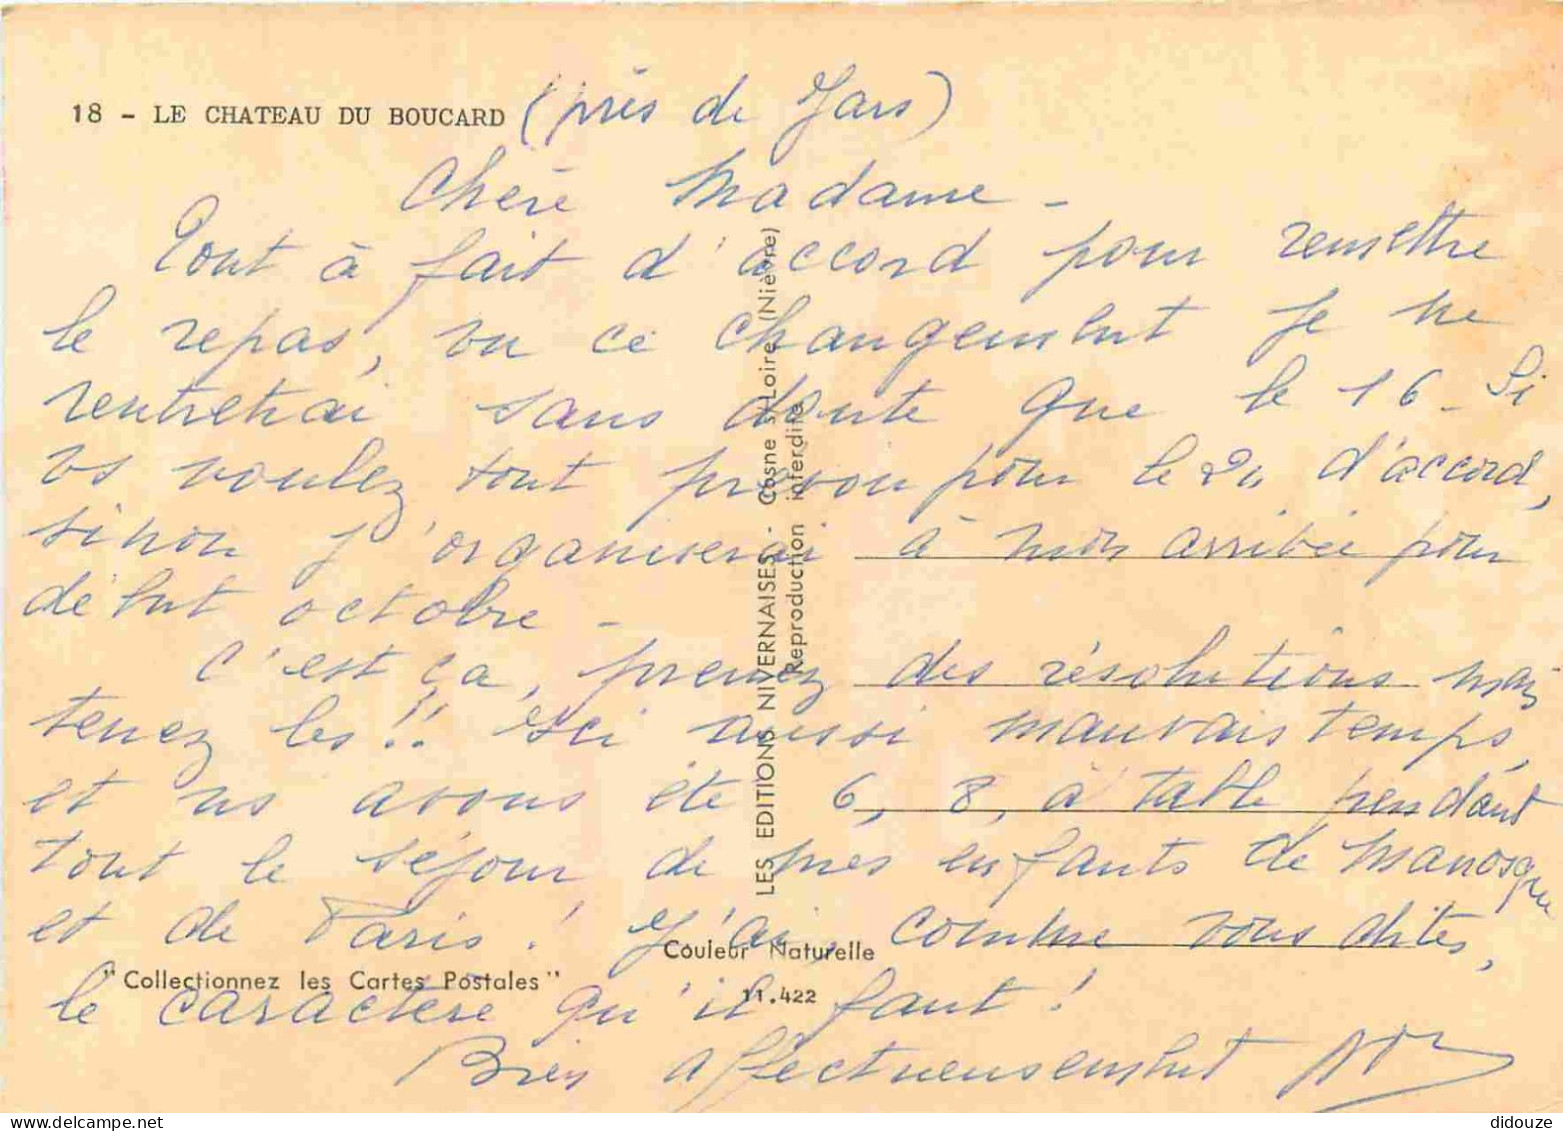 18 - LE CHATEAU DU BOUCARD (près de Jars)
Chère Madame -
Tout à fait d'accord pour remettre
le repas, vu ce changement je ne
rentrerai sans doute que le 16 - Si
vs voulez tout prévoir pour le 20 d'accord,
sinon j'organiserai à mon arrivée pour
début octobre -
C'est ça, prenez des résolutions mais
tenez les!! Ici aussi mauvais temps,
et ns avons été 6, 8, à table pendant
tout le séjour de mes enfants de Manosque
et de Paris! J'ai, comme vous dites,
le caractère qu'il faut!
Bien affectueusement
LES EDITIONS NIVERNAISES - Cosne s/Loire (Nièvre)
Reproduction interdite
Couleur Naturelle
"Collectionnez les Cartes Postales"
11.422
didouze